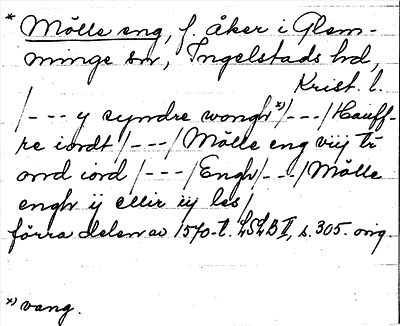 * Mölle eng, f. åker i Glem-
minge sn, Ingelstads hd,
Krist. l.
/--- y syndre wongh *)/---/Hauff-
re iordt /---/ Mölle eng viij tr
ond iord /---/ Engh/---/ Mölle
engh ij ellir iij les/
förra delen av 1570-t. LSLB II, s. 305. orig.
*) vang.